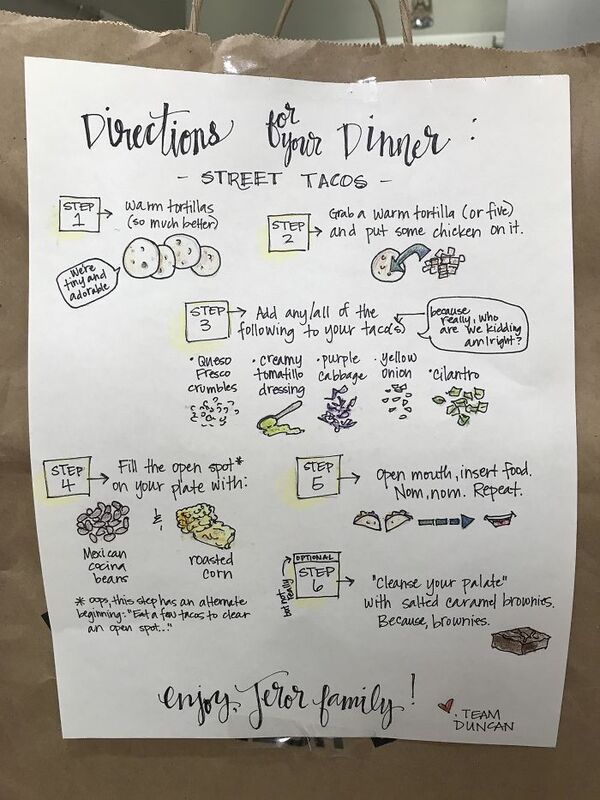 Directions for your Dinner:
- STREET TACOS -
STEP 1
warm tortillas
(so much better)
we're
tiny and
adorable
STEP 2
Grab a warm tortilla (or five)
and put some chicken on it.
STEP 3
Add any/all of the
following to your taco(s)
because
really, who
are we kidding
amIright?
• Queso
Fresco
crumbles
• creamy
tomatillo
dressing
• purple
cabbage
• yellow
onion
• cilantro
STEP 4
Fill the open spot*
on your plate with:
Mexican
cocina
beans
&
roasted
corn
* oops, this step has an alternate
beginning: "Eat a few tacos to clear
an open spot..."
STEP 5
Open mouth, insert food.
Nom, nom. Repeat.
OPTIONAL
but not really
STEP 6
"Cleanse your palate"
with salted caramel brownies.
Because, brownies.
enjoy, Jeror family!
. TEAM
DUNCAN